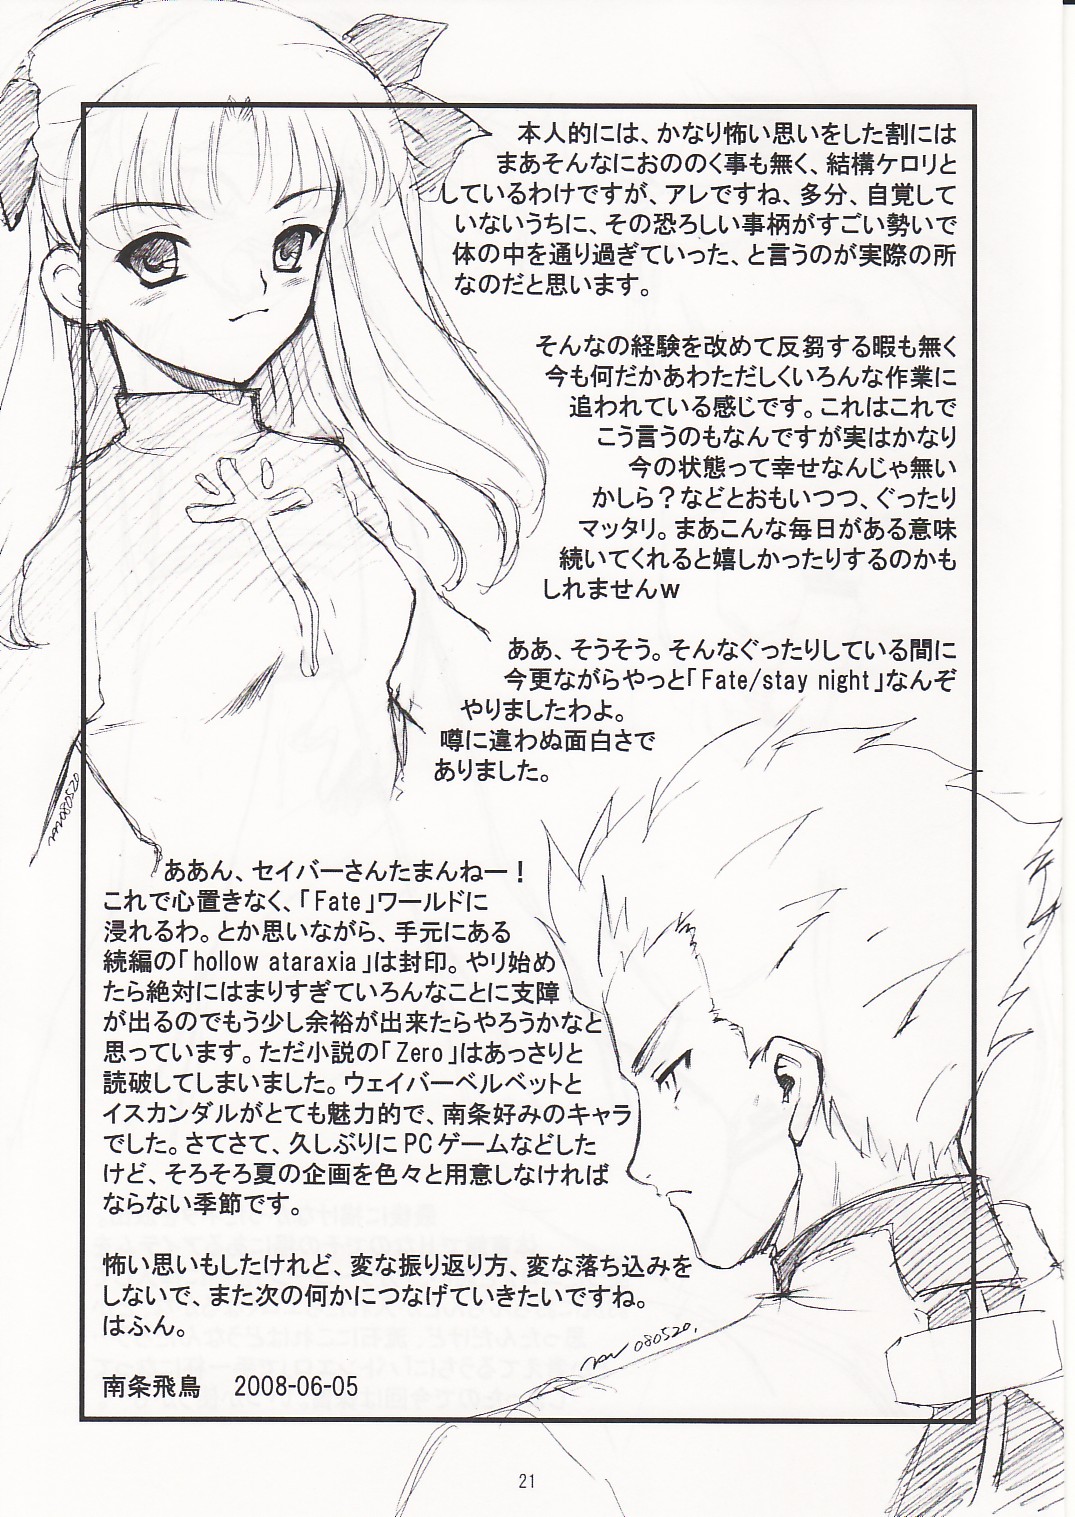 本人的には、かなり怖い思いをした割には
まあそんなにおののく事も無く、結構ケロリと
しているわけですが、アレですね、多分、自覚して
いないうちに、その恐ろしい事柄がすごい勢いで
体の中を通り過ぎていった、と言うのが実際の所
なのだと思います。
そんなの経験を改めて反芻する暇も無く
今も何だかあわただしくいろんな作業に
追われている感じです。これはこれで
こう言うのもなんですが実はかなり
今の状態って幸せなんじゃ無い
かしら？などとおもいつつ、ぐったり
マッタリ。まあこんな毎日がある意味
続いてくれると嬉しかったりするのかも
しれませんｗ
ああ、そうそう。そんなぐったりしている間に
今更ながらやっと「Fate/stay night」なんぞ
やりましたわよ。
噂に違わぬ面白さで
ありました。
ああん、セイバーさんたまんねー！
これで心置きなく、「Fate」ワールドに
浸れるわ。とか思いながら、手元にある
続編の「hollow ataraxia」は封印。やり始め
たら絶対にはまりすぎていろんなことに支障
が出るのでもう少し余裕が出来たらやろうかなと
思っています。ただ小説の「Zero」はあっさりと
読破してしまいました。ウェイバーベルベットと
イスカンダルがとても魅力的で、南条好みのキャラ
でした。さてさて、久しぶりにPCゲームなどした
けど、そろそろ夏の企画を色々と用意しなければ
ならない季節です。
怖い思いもしたけれど、変な振り返り方、変な落ち込みを
しないで、また次の何かにつなげていきたいですね。
はふん。
080520.
南条飛鳥　2008-06-05
21